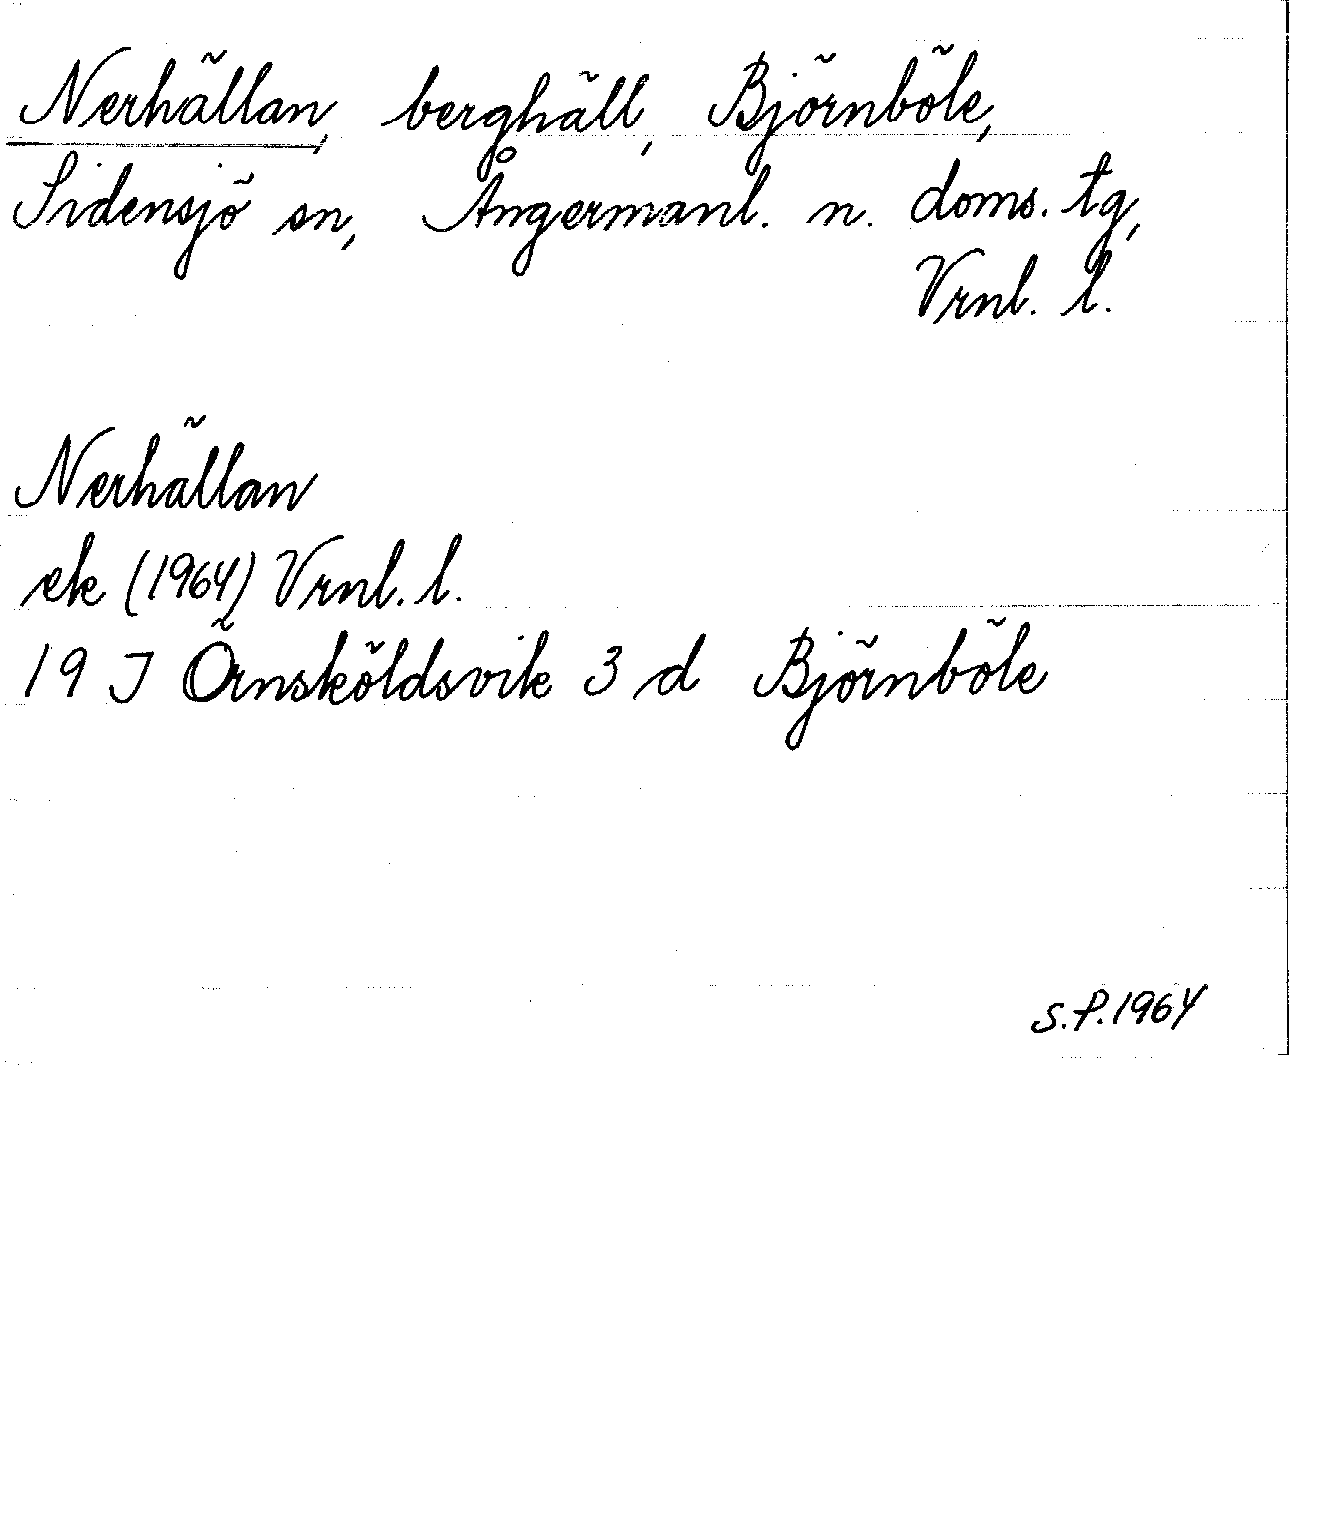 Nerhällan, berghäll, Björnböle,
Sidensjö sn, Ångermanl. n. doms. tg,
Vrnl. l.
Nerhällan
ek (1964) Vrnl. l.
19 J Örnsköldsvik 3 d Björnböle
S.P. 1964